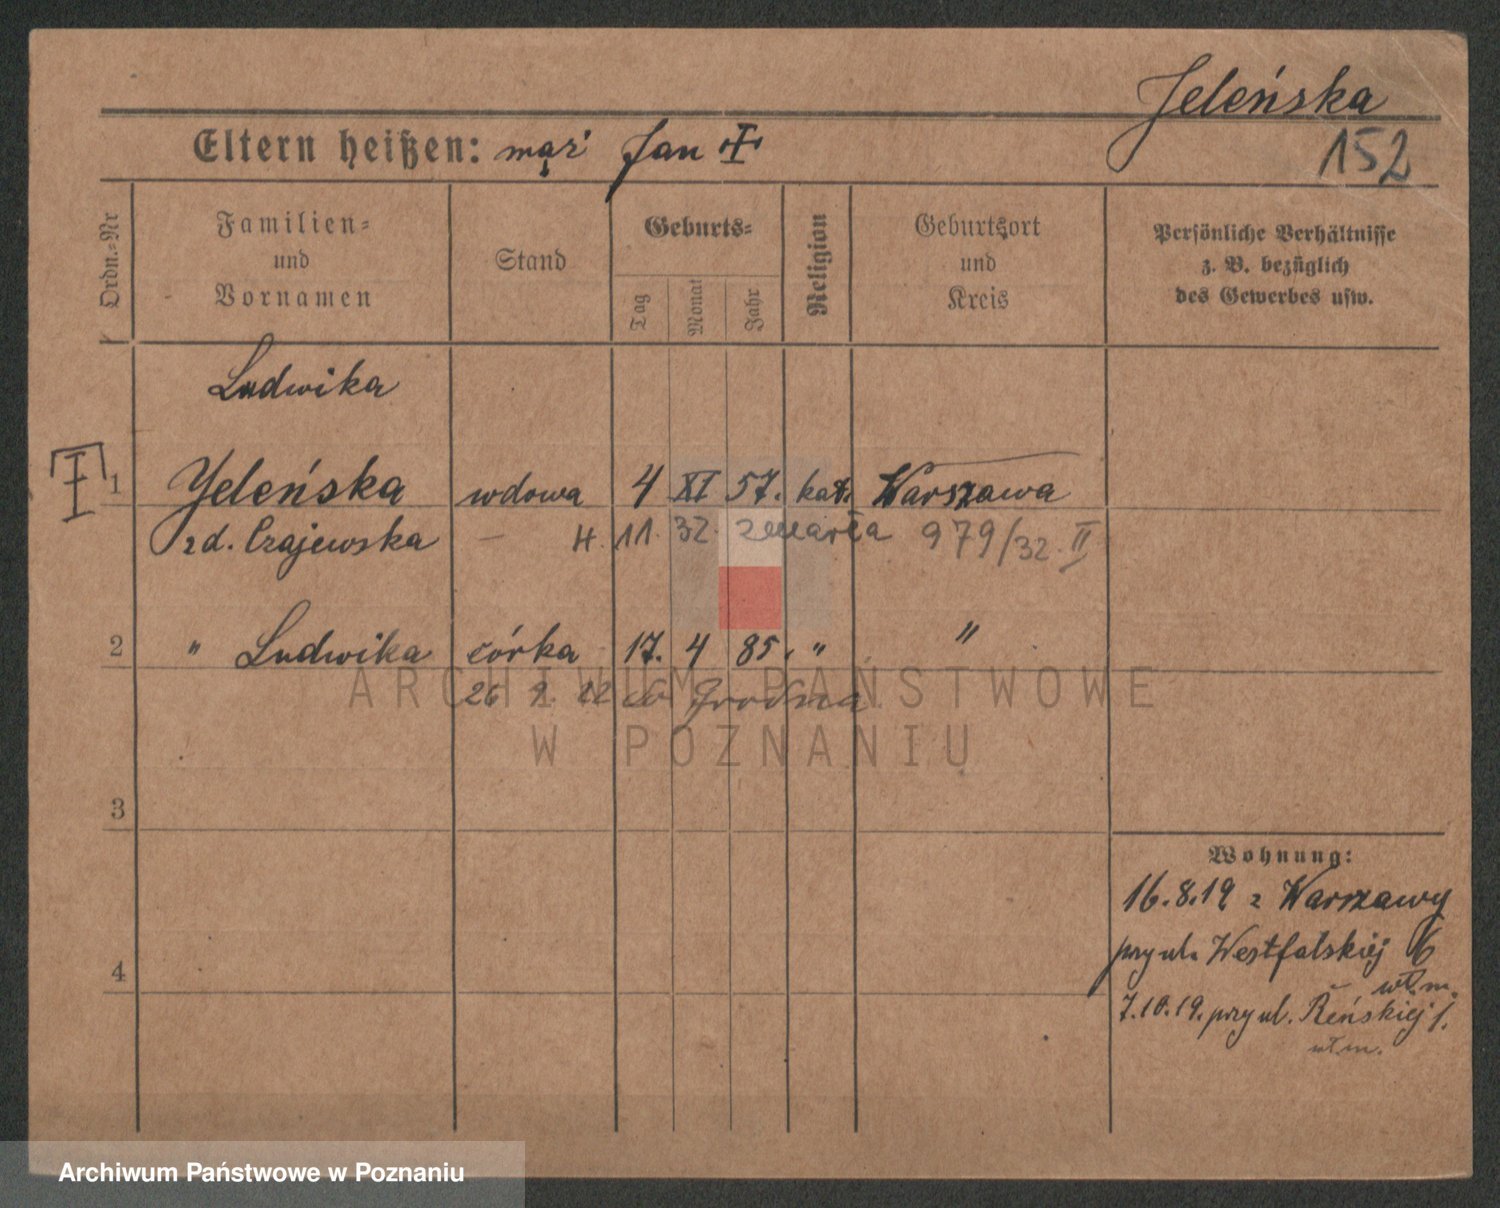 Jeleńska
152
Eltern heißen: mąż Jan
Ordn.-Nr
Familien-
und
Vornamen
Stand
Geburts-
Tag
Monat
Jahr
Religion
Geburtsort
und
Kreis
Persönliche Verhältnisse
z. B. bezüglich
des Gewerbes usw.
Ludwika
1 Jeleńska wdowa 4 XI 57. kat. Warszawa
zd. Czajewska — 4. 11. 32. zmarła 979/32. II
2 " Ludwika córka 17. 4 85. " "
26 9. 22 do Grodna
3
4
Wohnung:
16.8.19 z Warszawy
przy ul. Westfalskiej 6
wł. m.
7.10.19. przy ul. Reńskiej 1.
wł. m.
ARCHIWUM PAŃSTWOWE
W POZNANIU
Archiwum Państwowe w Poznaniu